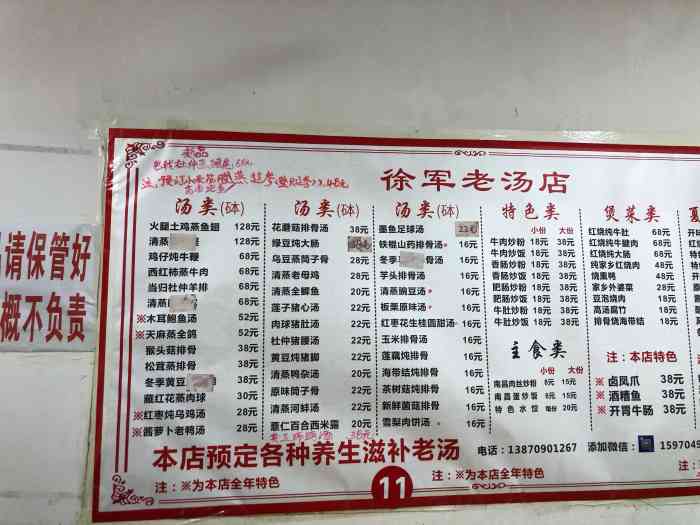 品请保管好
概不负责
徐军老汤店
汤类(砵)
火腿土鸡蒸鱼翅 128元
清蒸 128元
鸡仔炖牛鞭 68元
西红柿蒸牛肉 68元
当归杜仲羊排 68元
清蒸 68元
※木耳鮑鱼汤 58元
※天麻蒸全鸽 52元
猴头菇排骨 38元
松茸蒸排骨 38元
冬季黄豆 38元
藏红花蒸肉球 30元
※红枣炖乌鸡汤 28元
※酱萝卜老鸭汤 28元
汤类(砵)
花蘑菇排骨汤 38元
绿豆炖大肠
乌豆蒸筒子骨 28元
清蒸老母鸡 28元
清蒸全鲫鱼 20元
莲子猪心汤 22元
肉球猪肚汤 22元
杜仲猪腰汤 22元
黄豆炖猪脚 22元
清蒸鸭杂汤 20元
原味筒子骨 22元
清蒸河蚌汤 22元
薏仁百合西米露 20元
汤类(砵)
墨鱼足球汤 22元
铁棍山药排骨汤 16元
冬季 16元
芋头排骨汤 16元
清蒸豌豆汤 16元
板栗原味汤 16元
红枣花生桂圆甜汤 16元
玉米排骨 16元
莲藕炖排骨 16元
海带结炖排骨 16元
茶树菇炖排骨 16元
新鲜菌菇排骨 16元
雪梨肉饼汤 16元
特色类
小份 大份
牛肉炒粉 18元 38元
牛肉炒饭 18元 38元
香肠炒粉 18元 38元
香肠炒饭 18元 38元
肥肠炒粉 18元 38元
肥肠炒饭 18元 38元
牛肚炒粉 18元 38元
牛肚炒饭 18元 38元
主食类
南昌肉丝炒粉 8元 15元
南昌蛋炒饭 8元 15元
特色水饺 每份 20元
煲菜类
红烧炖牛肚 68元
红烧炖牛腱肉 68元
红烧炖大肠 68元
纯家乡红烧肉
烧熏鸭
家乡外婆菜
豆泡烧肉
高汤腐竹
排骨烧海带结 38元
注:本店特色
※ 卤凤爪 38元
※ 酒糟鱼 38元
※ 开胃牛肠 38元
本店预定各种养生滋补老汤
电话:13870901267 添加微信: 1597045
注:※为本店全年特色
11
注:※为本店全年特色